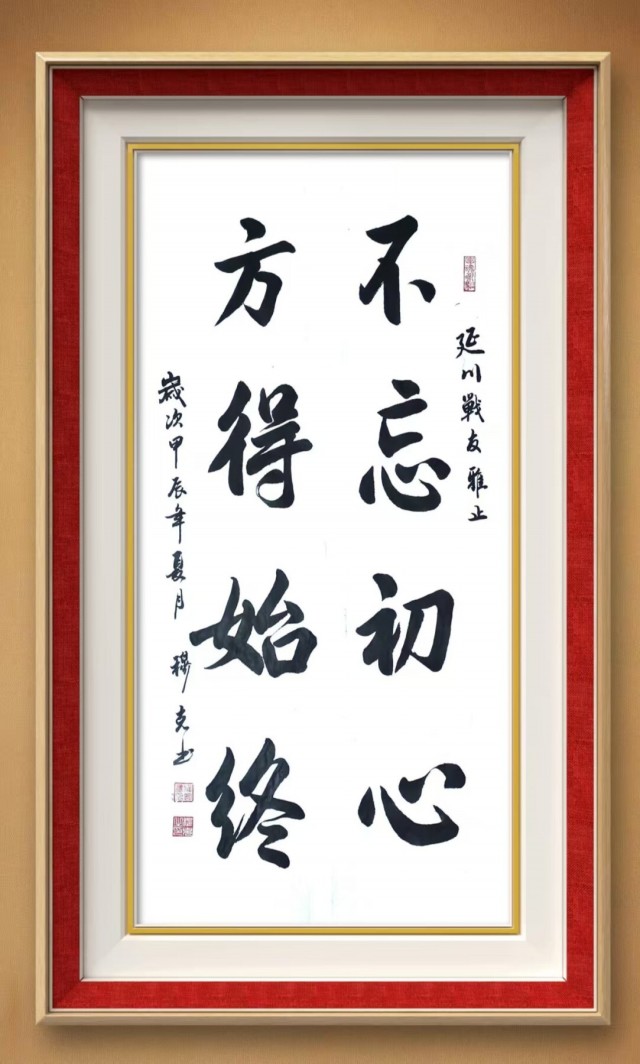 延川戰友雅正
不忘初心
方得始終
歲次甲辰年夏月 穆克书